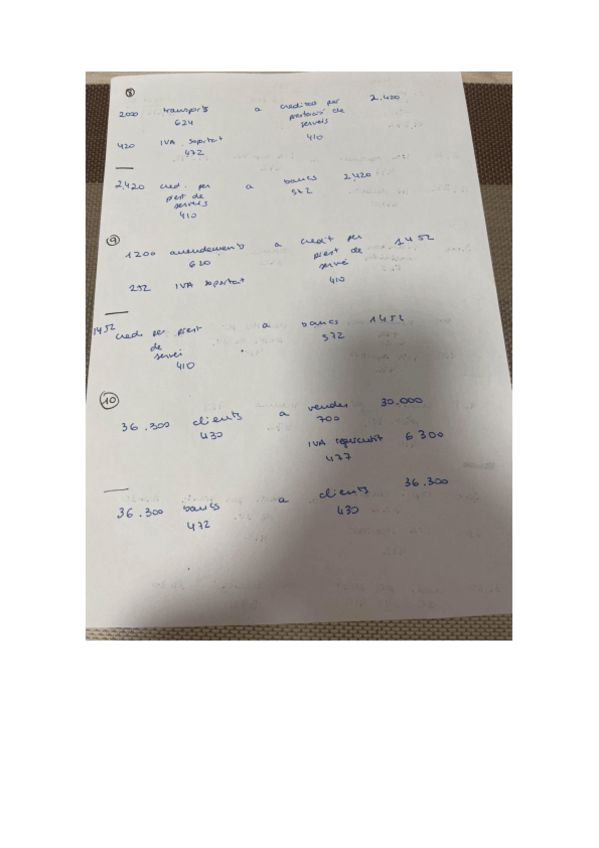 8
2000 transports a creditors per 2.420
624 prestació de
serveis
420 IVA soportat 410
472
2.420 cred. per a bancs 2.420
prest de 572
serveis
410
9
1200 arrendaments a credit per 1452
620 prest de
servei
252 IVA soportat 410
1452 cred per prest a bancs 1452
de 572
servei
410
10
36.300 clients a vendes 30.000
430 700
IVA repercutit 6300
477
36.300 bancs a clients 36.300
472 430